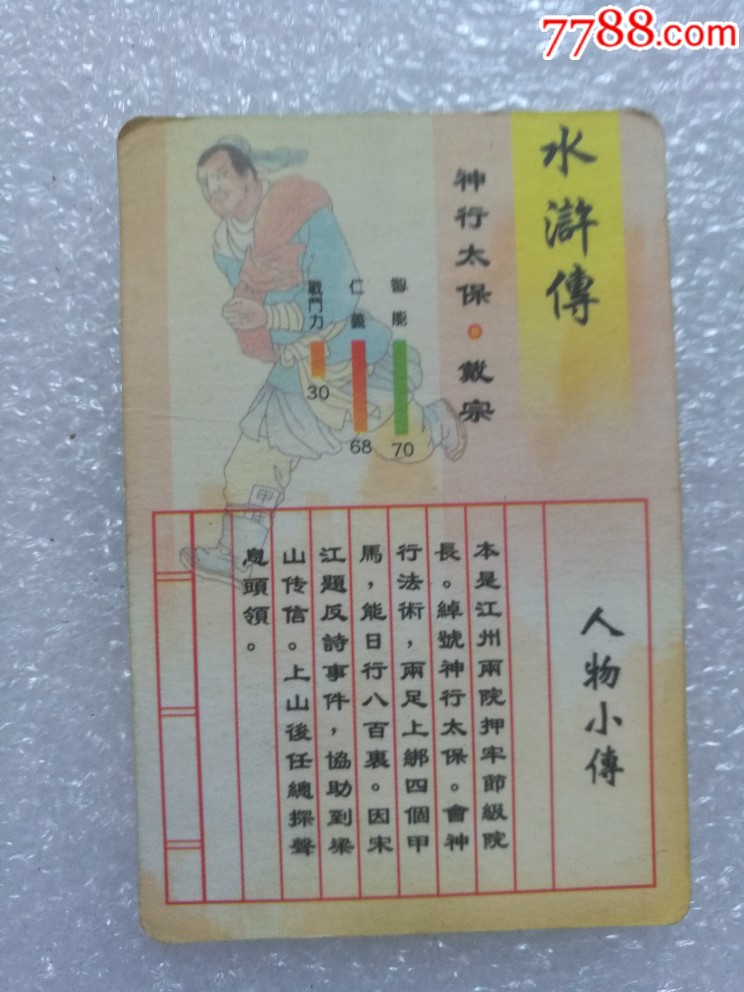 7788.com
水滸傳
神行太保·戴宗
智能
70
仁義
68
戰鬥力
30
甲
人物小傳
本是江州兩院押牢節級院
長。綽號神行太保。會神
行法術，兩足上綁四個甲
馬，能日行八百裏。因宋
江題反詩事件，協助到梁
山传信。上山後任總探聲
息頭領。